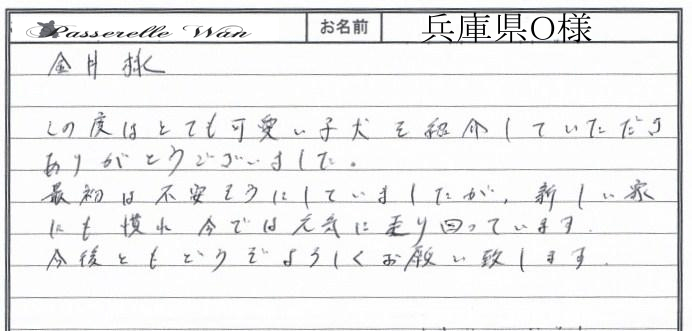 Passerelle Wan お名前 兵庫県O様
金井 様
この度はとても可愛い子犬を紹介していただき
ありがとうございました。
最初は不安そうにしていましたが、新しい家
にも慣れ今では元気に走り回っています.
今後ともどうぞよろしくお願い致します.